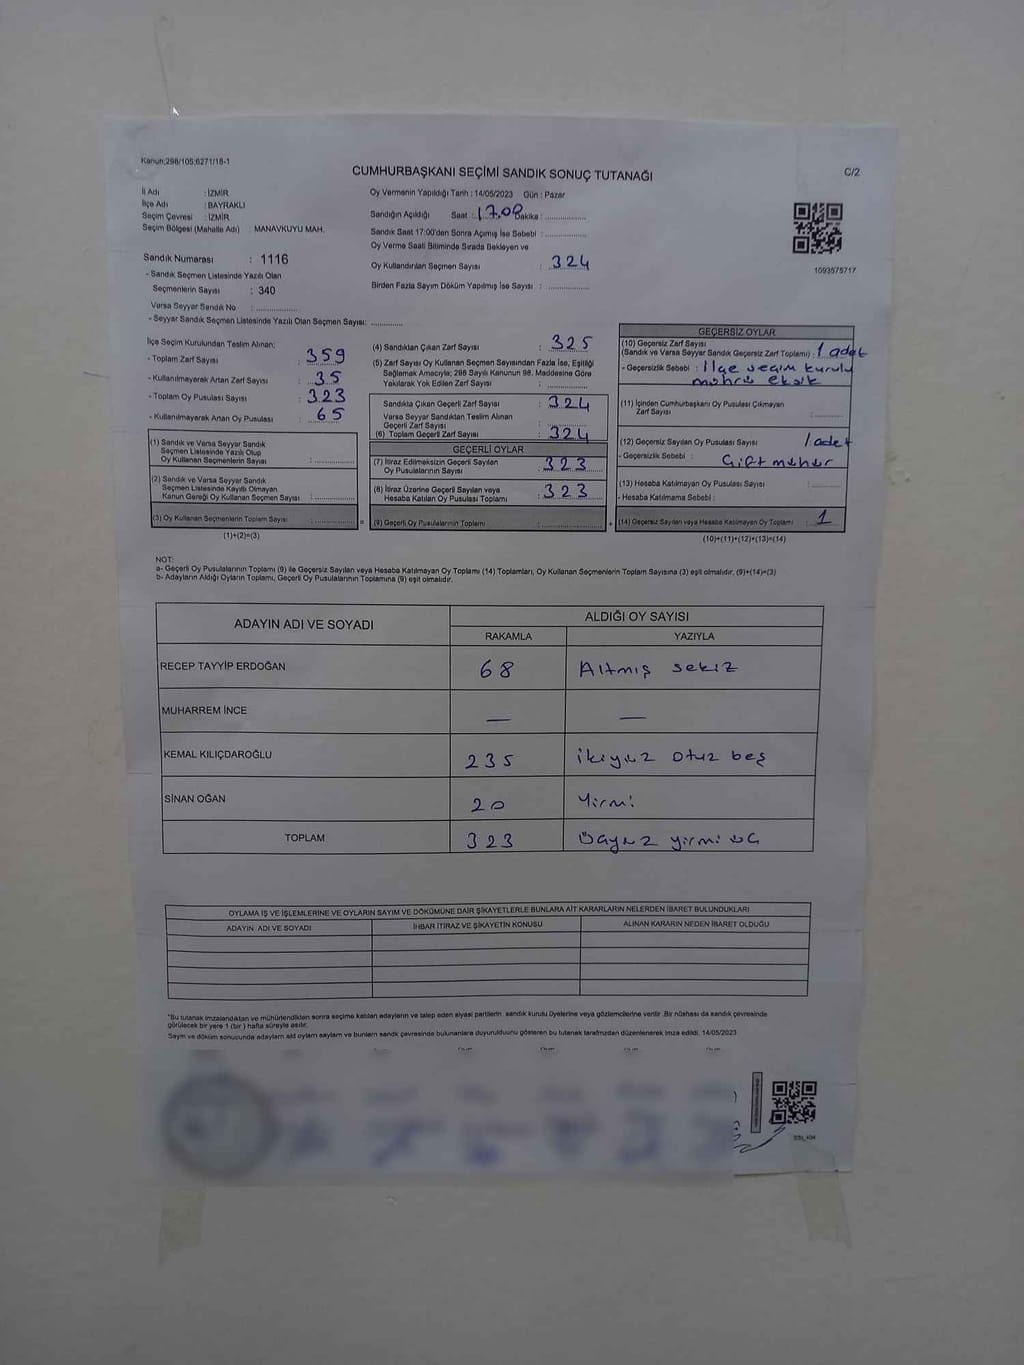 Kanun;298/105;6271/18-1
CUMHURBAŞKANI SEÇİMİ SANDIK SONUÇ TUTANAĞI
C/2
İl Adı : İZMİR
İlçe Adı : BAYRAKLI
Seçim Çevresi : İZMİR
Seçim Bölgesi (Mahalle Adı) : MANAVKUYU MAH.
Sandık Numarası : 1116
- Sandık Seçmen Listesinde Yazılı Olan
Seçmenlerin Sayısı : 340
Varsa Seyyar Sandık No : ..............
- Seyyar Sandık Seçmen Listesinde Yazılı Olan Seçmen Sayısı: ...........
Oy Vermenin Yapıldığı Tarih : 14/05/2023 Gün : Pazar
Sandığın Açıldığı Saat : 17.00 Dakika : ..............
Sandık Saat 17:00'den Sonra Açılmış İse Sebebi : ..............
Oy Verme Saati Bitiminde Sırada Bekleyen ve
Oy Kullandırılan Seçmen Sayısı : 324
Birden Fazla Sayım Döküm Yapılmış İse Sayısı : ..............
1093575717
İlçe Seçim Kurulundan Teslim Alınan;
- Toplam Zarf Sayısı : 359
- Kullanılmayarak Artan Zarf Sayısı : 35
- Toplam Oy Pusulası Sayısı : 323
- Kullanılmayarak Artan Oy Pusulası : 65
(1) Sandık ve Varsa Seyyar Sandık
Seçmen Listesinde Yazılı Olup
Oy Kullanan Seçmenlerin Sayısı : ..............
(2) Sandık ve Varsa Seyyar Sandık
Seçmen Listesinde Kayıtlı Olmayan
Kanun Gereği Oy Kullanan Seçmen Sayısı : ..............
(3) Oy Kullanan Seçmenlerin Toplam Sayısı : ..............
(1)+(2)=(3)
(4) Sandıktan Çıkan Zarf Sayısı : 325
(5) Zarf Sayısı Oy Kullanan Seçmen Sayısından Fazla İse, Eşitliği
Sağlamak Amacıyla; 298 Sayılı Kanunun 98. Maddesine Göre
Yakılarak Yok Edilen Zarf Sayısı : ..............
Sandıkta Çıkan Geçerli Zarf Sayısı : 324
Varsa Seyyar Sandıktan Teslim Alınan
Geçerli Zarf Sayısı : ..............
(6) Toplam Geçerli Zarf Sayısı : 324
GEÇERLİ OYLAR
(7) İtiraz Edilmeksizin Geçerli Sayılan
Oy Pusulalarının Sayısı : 323
(8) İtiraz Üzerine Geçerli Sayılan veya
Hesaba Katılan Oy Pusulası Toplamı : 323
(9) Geçerli Oy Pusulalarının Toplamı : ..............
GEÇERSİZ OYLAR
(10) Geçersiz Zarf Sayısı
(Sandık ve Varsa Seyyar Sandık Geçersiz Zarf Toplamı) : 1 adet
- Geçersizlik Sebebi : İlçe seçim kurulu
mührü eksik
(11) İçinden Cumhurbaşkanı Oy Pusulası Çıkmayan
Zarf Sayısı : ..........
(12) Geçersiz Sayılan Oy Pusulası Sayısı 1 adet
- Geçersizlik Sebebi : Çift mühür
(13) Hesaba Katılmayan Oy Pusulası Sayısı : ..........
- Hesaba Katılmama Sebebi :
(14) Geçersiz Sayılan veya Hesaba Katılmayan Oy Toplamı : 1
(10)+(11)+(12)+(13)=(14)
NOT:
a- Geçerli Oy Pusulalarının Toplamı (9) ile Geçersiz Sayılan veya Hesaba Katılmayan Oy Toplamı (14) Toplamları, Oy Kullanan Seçmenlerin Toplam Sayısına (3) eşit olmalıdır. (9)+(14)=(3)
b- Adayların Aldığı Oyların Toplamı, Geçerli Oy Pusulalarının Toplamına (9) eşit olmalıdır.
ADAYIN ADI VE SOYADI ALDIĞI OY SAYISI
RAKAMLA YAZIYLA
RECEP TAYYİP ERDOĞAN 68 Altmış sekiz
MUHARREM İNCE — —
KEMAL KILIÇDAROĞLU 235 ikiyüz otuz beş
SİNAN OĞAN 20 Yirmi
TOPLAM 323 Üçyüz yirmi üç
OYLAMA İŞ VE İŞLEMLERİNE VE OYLARIN SAYIM VE DÖKÜMÜNE DAİR ŞİKAYETLERLE BUNLARA AİT KARARLARIN NELERDEN İBARET BULUNDUKLARI
ADAYIN ADI VE SOYADI İHBAR İTİRAZ VE ŞİKAYETİN KONUSU ALINAN KARARIN NEDEN İBARET OLDUĞU
*Bu tutanak imzalandıktan ve mühürlendikten sonra seçime katılan adayların ve talep eden siyasi partilerin sandık kurulu üyelerine veya gözlemcilerine verilir. Bir nüshası da sandık çevresinde
görülecek bir yere 1 (bir) hafta süreyle asılır.
Sayım ve döküm sonucunda adayların aldığı oyların sayısını ve bunların sandık çevresinde bulunanlara duyurulduğunu gösteren bu tutanak tarafımızdan düzenlenerek imza edildi. 14/05/2023